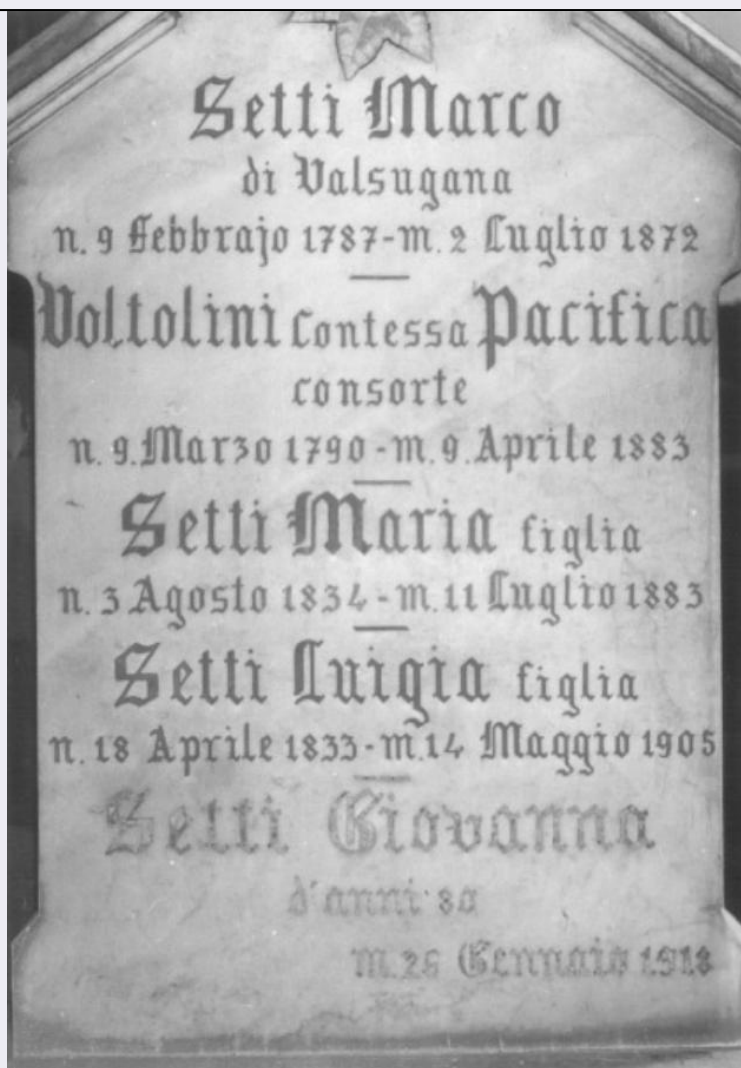 Setti Marco
di Valsugana
n. 9 Febbrajo 1787-m. 2 Luglio 1872
Voltolini Contessa Pacifica
consorte
n. 9. Marzo 1790 - m. 9. Aprile 1883
Setti Maria figlia
n. 3 Agosto 1834 - m. 11 Luglio 1883
Setti Luigia figlia
n. 18 Aprile 1833 - m. 14 Maggio 1905
Setti Giovanna
d'anni 80
m. 26 Gennaio 1918